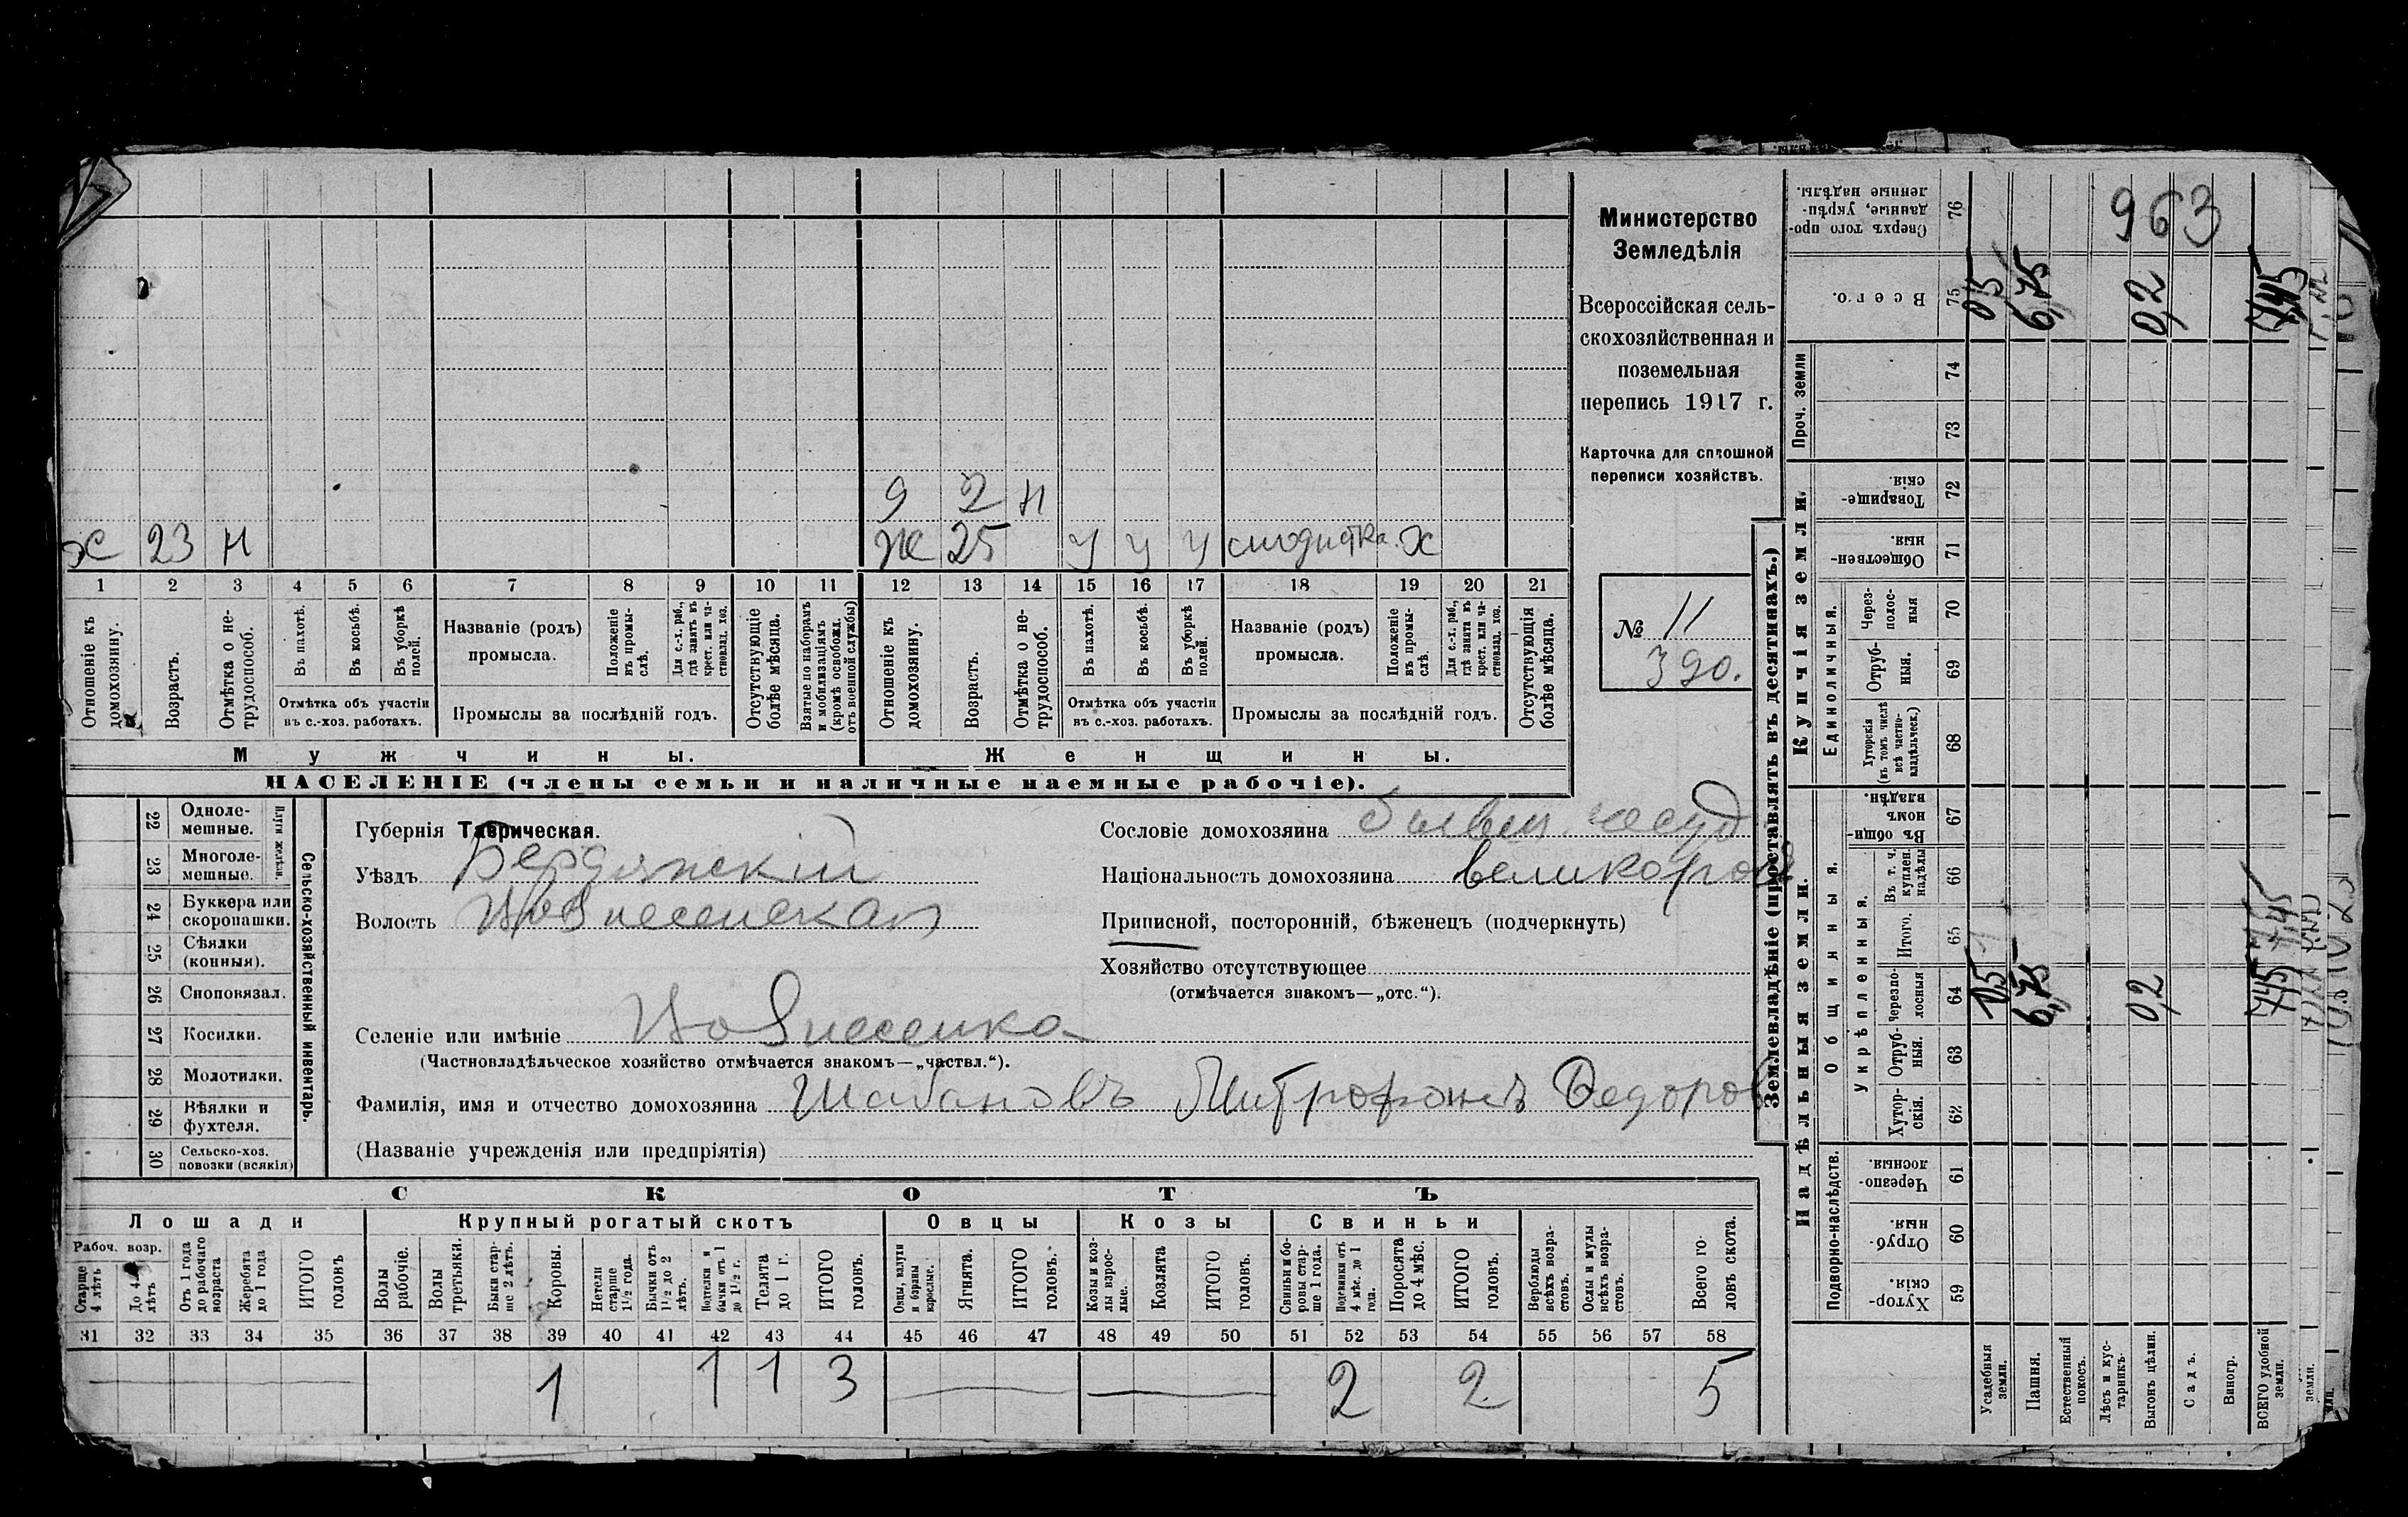 Министерство
Земледѣлія
Всероссійская сель-
скохозяйственная и
поземельная
перепись 1917 г.
Карточка для сплошной
переписи хозяйствъ.
№ 11
390.
9 2 н
ж 23 н
ж 25 у у у х
1 2 3 4 5 6 7 8 9 10 11 12 13 14 15 16 17 18 19 20 21
Отношеніе къ домохозяину.
Возрастъ.
Отмѣтка о не-трудоспособ.
Въ пахотѣ.
Въ косьбѣ.
Въ уборкѣ полей.
Отмѣтка объ участіи
въ с.-хоз. работахъ.
Названіе (родъ)
промысла.
Положеніе въ промы-слѣ.
Для с.-х. раб., гдѣ занятъ въ крест. или ча-стновлад. хоз.
Промыслы за послѣдній годъ.
Отсутствующіе болѣе мѣсяца.
Взятые по наборамъ и мобилизаціямъ (кромѣ освобожд. отъ военной службы)
Отношеніе къ домохозяину.
Возрастъ.
Отмѣтка о не-трудоспособ.
Въ пахотѣ.
Въ косьбѣ.
Въ уборкѣ полей.
Отмѣтка объ участіи
въ с.-хоз. работахъ.
Названіе (родъ)
промысла.
Положеніе въ промы-слѣ.
Для с.-х. раб., гдѣ занята въ крест. или ча-стновлад. хоз.
Промыслы за послѣдній годъ.
Отсутствующія болѣе мѣсяца.
Мужчины.
Женщины.
НАСЕЛЕНІЕ (члены семьи и наличные наемные рабочіе).
Сельско-хозяйственный инвентарь.
Плуги желѣзн.
22 Одноле-мешные.
23 Многоле-мешные.
24 Буккера или скоропашки.
25 Сѣялки (конныя).
26 Сноповязал.
27 Косилки.
28 Молотилки.
29 Вѣялки и фухтеля.
30 Сельско-хоз. повозки (всякія)
Губернія Таврическая.
Уѣздъ Бердянскій
Волость Новпесенская
Селеніе или имѣніе
(Частновладѣльческое хозяйство отмѣчается знакомъ—„частвл.“).
Фамилія, имя и отчество домохозяина Шабановъ Митрофанъ Федоров
(Названіе учрежденія или предпріятія)
Сословіе домохозяина бывш. госуд
Національность домохозяина великоросс
Приписной, посторонній, бѣженецъ (подчеркнуть)
Хозяйство отсутствующее
(отмѣчается знакомъ—„отс.“).
СКОТЪ
Лошади
Крупный рогатый скотъ
Овцы
Козы
Свиньи
Рабоч. возр.
Старше 4 лѣтъ
До 4 лѣтъ
Отъ 1 года до рабочаго возраста
Жеребята до 1 года
ИТОГО головъ
Волы рабочіе.
Волы третьяки.
Быки стар-ше 2 лѣтъ.
Коровы.
Нетели старше 1½ года.
Бычки отъ 1½ до 2 лѣтъ.
Нетелки и бычки отъ 1 до 1½ г.
Телята до 1 г.
ИТОГО головъ.
Овцы, валухи и бараны взрослые.
Ягнята.
ИТОГО головъ.
Козы и коз-лы взрос-лые.
Козлята
ИТОГО головъ.
Свиньи и бо-ровы стар-ше 1 года.
Подсвинки отъ 4 мѣс. до 1 года.
Поросята до 4 мѣс.
ИТОГО головъ.
Верблюды всѣхъ возра-стовъ.
Ослы и мулы всѣхъ возра-стовъ.
Всего го-ловъ скота.
31 32 33 34 35 36 37 38 39 40 41 42 43 44 45 46 47 48 49 50 51 52 53 54 55 56 57 58
1 1 1 3 2 2 5
Землевладѣніе (проставлять въ десятинахъ.)
Надѣльныя земли.
Купчія земли.
Проч. земли
Подворно-наслѣдств.
Общинныя.
Укрѣпленныя.
Единоличныя.
Хутор-скія. 59
Отруб-ныя. 60
Черезпо-лосныя. 61
Хутор-скія. 62
Отруб-ныя. 63
Черезпо-лосныя 64
Итого. 65
Въ т. ч. куплен. надѣлы 66
Въ общи-номъ владѣн. 67
Хуторскія (въ томъ числѣ всѣ частно-владѣльческ.) 68
Отруб-ныя. 69
Через-полос-ныя 70
Обществен-ныя. 71
Товарище-скія. 72
73
74
Всего. 75
Сверхъ того про-данные, укрѣп-ленные надѣлы. 76
Усадебныя земли.
Пашня.
Естественный покосъ.
Лѣсъ и кус-тарникъ.
Выгонъ цѣлин.
Садъ.
Виногр.
ВСЕГО удобной земли.
05 6,75 0,2 745
05 6,75 0,2 745
963